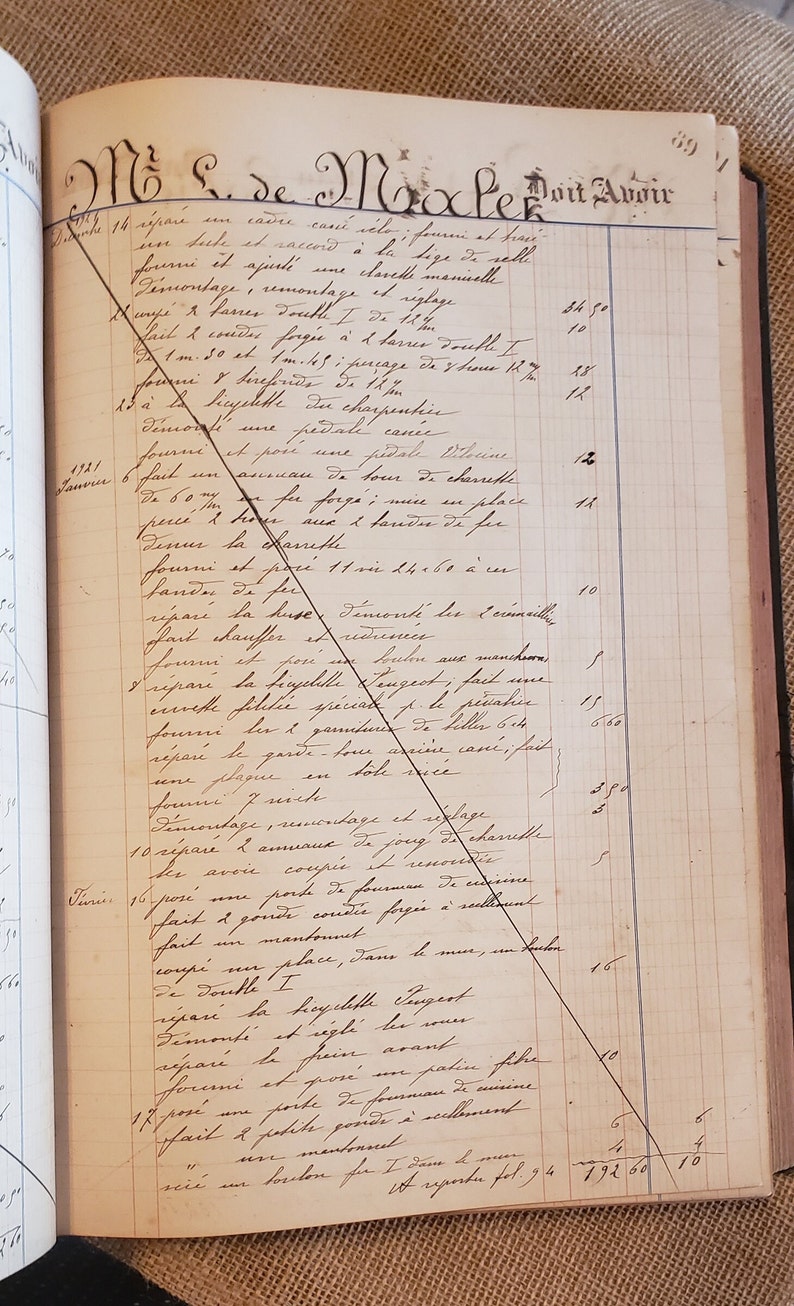 89
Mr L. de Mialet Doit Avoir
Décembre 14 réparé un cadre cassé vélo ; fourni et brasé
un tube et raccord à la tige de selle
fourni et ajusté une clavette manivelle
démontage, remontage et réglage 34 50
21 coupé 2 barres double I de 12 c/m 10
fait 2 coudes forgés à 2 barres double I
de 1 m. 30 et 1 m. 45 ; perçage de 8 trous 12 m/m 28
fourni 8 tirefonds de 12 c/m 12
23 à la bicyclette du charpentier
démonté une pédale cassée
fourni et posé une pédale 12
1921
Janvier 6 fait un anneau de bour de charrette
de 60 m/m en fer forgé ; mise en place 12
percé 2 trous aux 2 bandes de fer
dessus la charrette
fourni et posé 11 vis 24 x 60 à ces
bandes de fer 10
réparé la herse, démonté les 2 crémaillères
fait chauffer et redressées
fourni et posé un boulon aux mancherons 5
8 réparé la bicyclette Peugeot ; fait une
cuvette filetée spéciale p. le pédalier 15
fourni les 2 garnitures de billes 6 60
réparé le garde-boue arrière cassé ; fait
une plaque en tôle rivée
fourni 7 rivets 3 50
démontage, remontage et réglage 3
10 réparé 2 anneaux de joug de charrette
les avoir coupés et ressoudés 5
Février 16 posé une porte de fourneau de cuisine
fait 2 gonds coudés forgés à scellement
fait un mantonnet
coupé sur place, dans le mur, un boulon
de double I 16
réparé la bicyclette Peugeot
démonté et réglé les roues
réparé le frein avant
fourni et posé un patin fibre 10
17 posé une porte de fourneau de cuisine
fait 2 petits gonds à scellement 6 6
" un mantonnet 4 4
scié un boulon fer I dans le mur 192 60 10
A reporter fol. 94